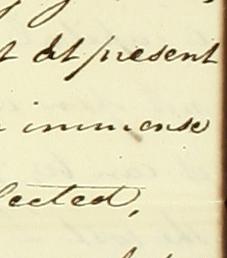 t at present
immense
lected,